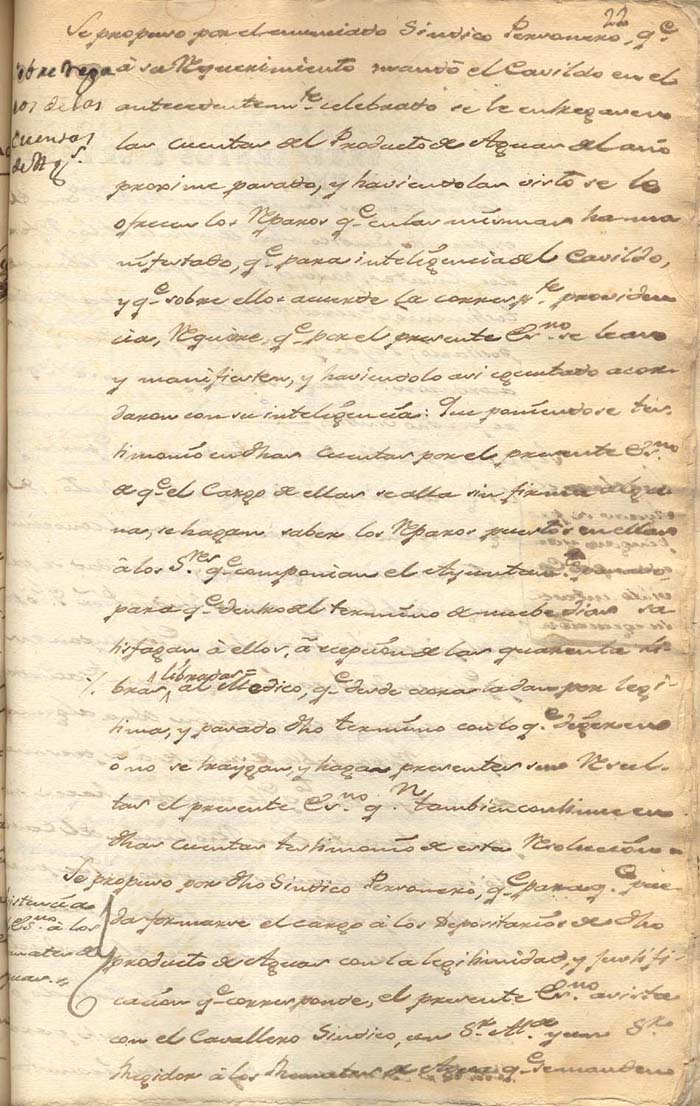 22
Se propuso por el enunciado Sindico Personero, q.e
à su Requerimiento mandó el Cavildo en el
antecedentem.te celebrado se le entregaren
las Cuentas del Producto de Aguas del año
proximo pasado, y haviendolas visto se le
ofrecen los Reparos q.e en las mismas ha ma
nifestado, q.e para inteligencia del Cavildo,
y q.e sobre ellos acuerde la corresp.te providen
cia, Requiere, q.e por el presente Es.no se lean
y manifiesten, y haviendolo asi egecutado acor
daron con su inteligencia: Que poniendose tes
timonio en dhas Cuentas por el presente Es.no
de q.e el Cargo de ellas se alla sin firma algu
na, se hagan saber los Reparos puestos en ellas
à los S.res q.e componian el Ayuntam.to
para q.e dentro del termino de nuebe dias sa
tisfagan à ellos, à ecepcion de las quarenta li
bras, libradas= al Medico, q.e desde aora las dan por legi
tima, y pasado dho termino con lo q.e digeren
ò no se traygan, y hagan presentes sus Resul
tas el presente Es.no q.n tambien continue en
dhas cuentas testimonio de esta Resolucion=
Se propuso por dho Sindico Personero, q.e para q.e pue
da formarse el cargo à los Depositarios de dho
producto de Aguas con la legitimidad, y justifi
cacion q.e corresponde, el presente Es.no asista
con el Cavallero Sindico, un S.r Al.de y un S.r
Regidor à los Remates de Agua q.e se manden
de los
Cuentas
de Ag.s
istencia
Es.no à los
mates de
guas